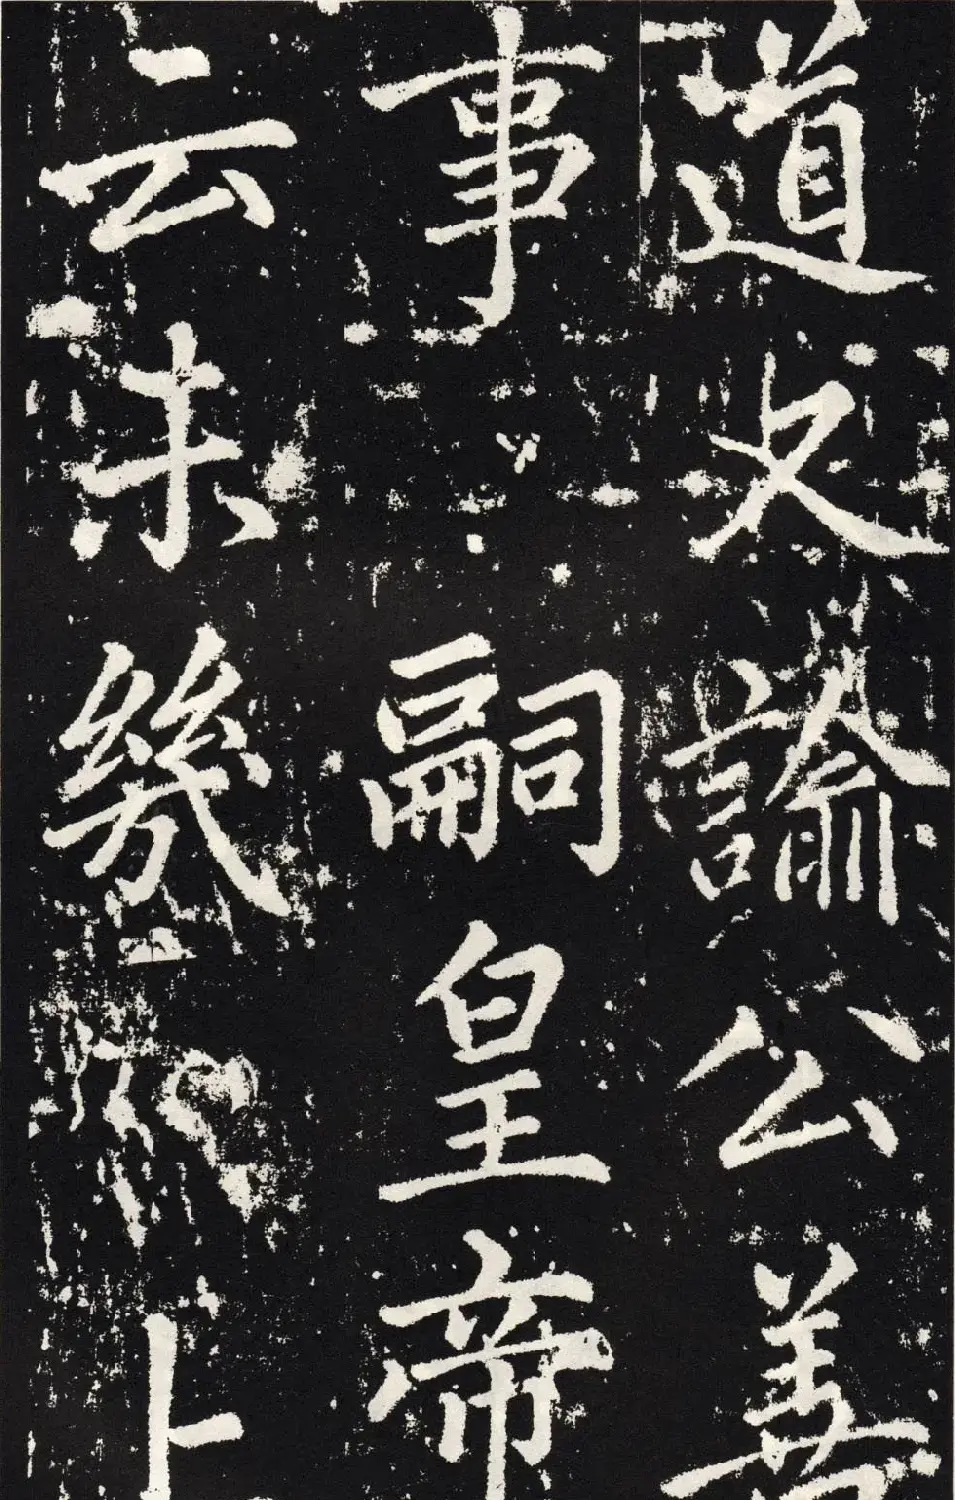 道又諭公善
事嗣皇帝
云未幾上